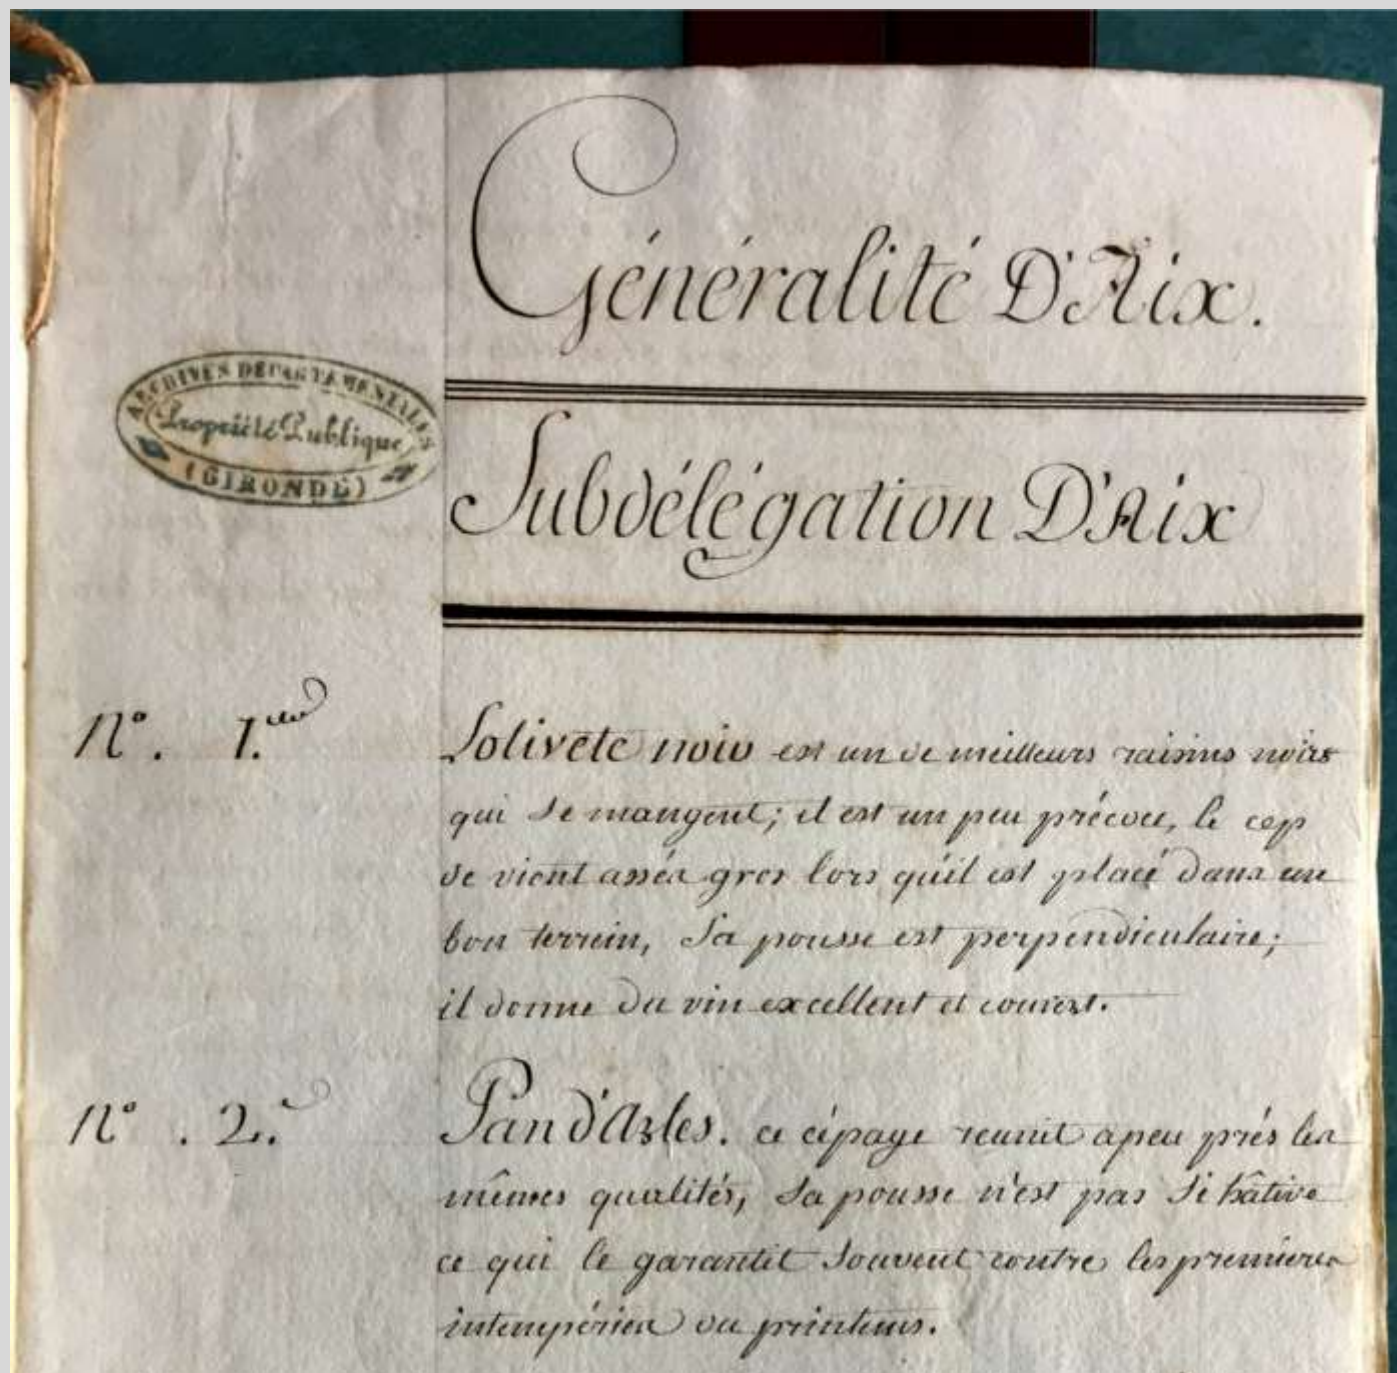 Généralité D'Aix.
ARCHIVES DÉPARTEMENTALES
Propriété Publique
(GIRONDE)
Subdélégation D'Aix
N°. 1.er Lolivete noir est un de meilleurs raisins noirs
qui se mangent; il est un peu précoce, le cep
de vient assés gros lors qu'il est placé dans un
bon terrein, Sa pousse est perpendiculaire;
il donne du vin excellent et couvert.
N°. 2.e Pan d'Arles. ce cépage reunit apeu prés les
mêmes qualités, Sa pousse n'est pas Si hâtive
ce qui le garantit Souvent contre les premieres
intempéries du printems.